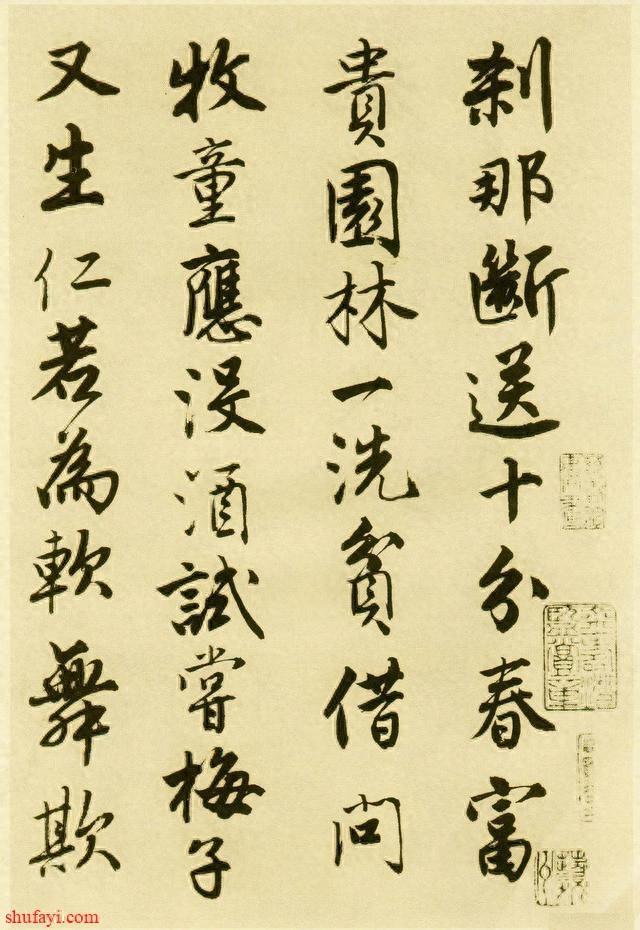 刹那斷送十分春富
貴園林一洗貧借問
牧童應沒酒試嘗梅子
又生仁若為軟舞欺
shufayi.com